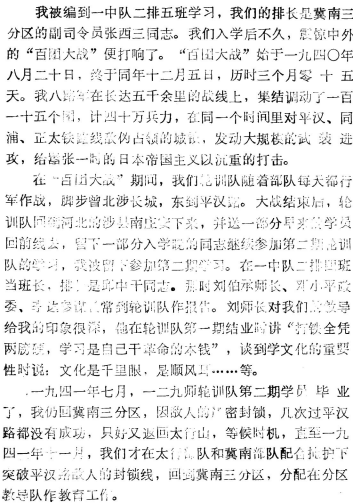 我被编到一中队二排五班学习，我们的排长是冀南三
分区的副司令员张西三同志。我们入学后不久，震惊中外
的“百团大战”便打响了。“百团大战”始于一九四〇年
八月二十日，终于同年十二月五日，历时三个月零十五
天。我八路军在长达五千余里的战线上，集结调动了一百
一十五个团，计四十万兵力，在同一个时间里对平汉、同
浦、正太铁路线敌伪占领的城镇，发动大规模的武装进
攻，给嚣张一时的日本帝国主义以沉重的打击。
在“百团大战”期间，我们轮训队随着部队每天都行
军作战，脚步曾北涉长城，东到平汉路。大战结束后，轮
训队回到河北的涉县南庄安下来，并送一部分早来的学员
回前线去，留下一部分入学晚的同志继续参加第二期轮训
队的学习，我被留下参加第二期学习。在一中队二排四班
当班长，排长是中干同志。那时刘伯承师长、邓小平政
委、李达参谋长常到轮训队作报告。刘师长对我们的教导
给我的印象很深，他在轮训队第一期结业时讲“打铁全凭
两膀硬，学习是自己干革命的本钱”，谈到学文化的重要
性时说：文化是千里眼，是顺风耳……等。
一九四一年七月，一二九师轮训队第二期学员毕业
了，我仍回冀南三分区，因敌人的严密封锁，几次过平汉
路都没有成功，只好又返回太行山，等候时机，直至一九
四一年十一月，我们才在太行部队和冀南部队配合掩护下
突破平汉路敌人的封锁线，回到冀南三分区，分配在分区
教导队作教育工作。